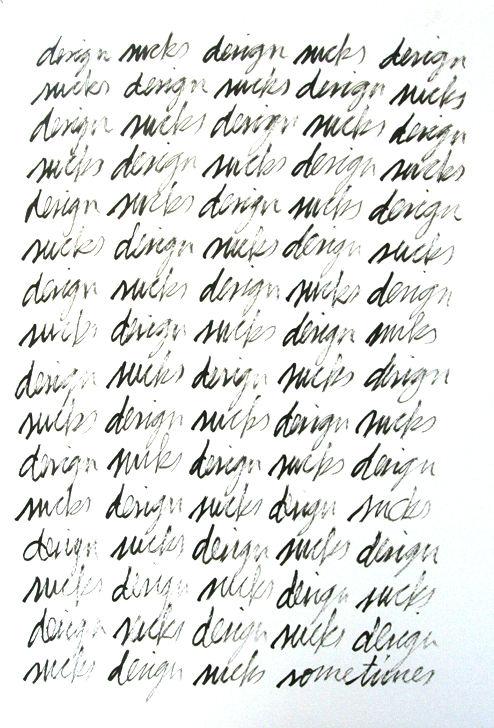 design sucks design sucks design
sucks design sucks design sucks
design sucks design sucks design
sucks design sucks design sucks
design sucks design sucks design
sucks design sucks design sucks
design sucks design sucks design
sucks design sucks design sucks
design sucks design sucks design
sucks design sucks design sucks
design sucks design sucks design
sucks design sucks design sucks
design sucks design sucks design
sucks design sucks design sucks
design sucks design sucks design
sucks design sucks sometimes